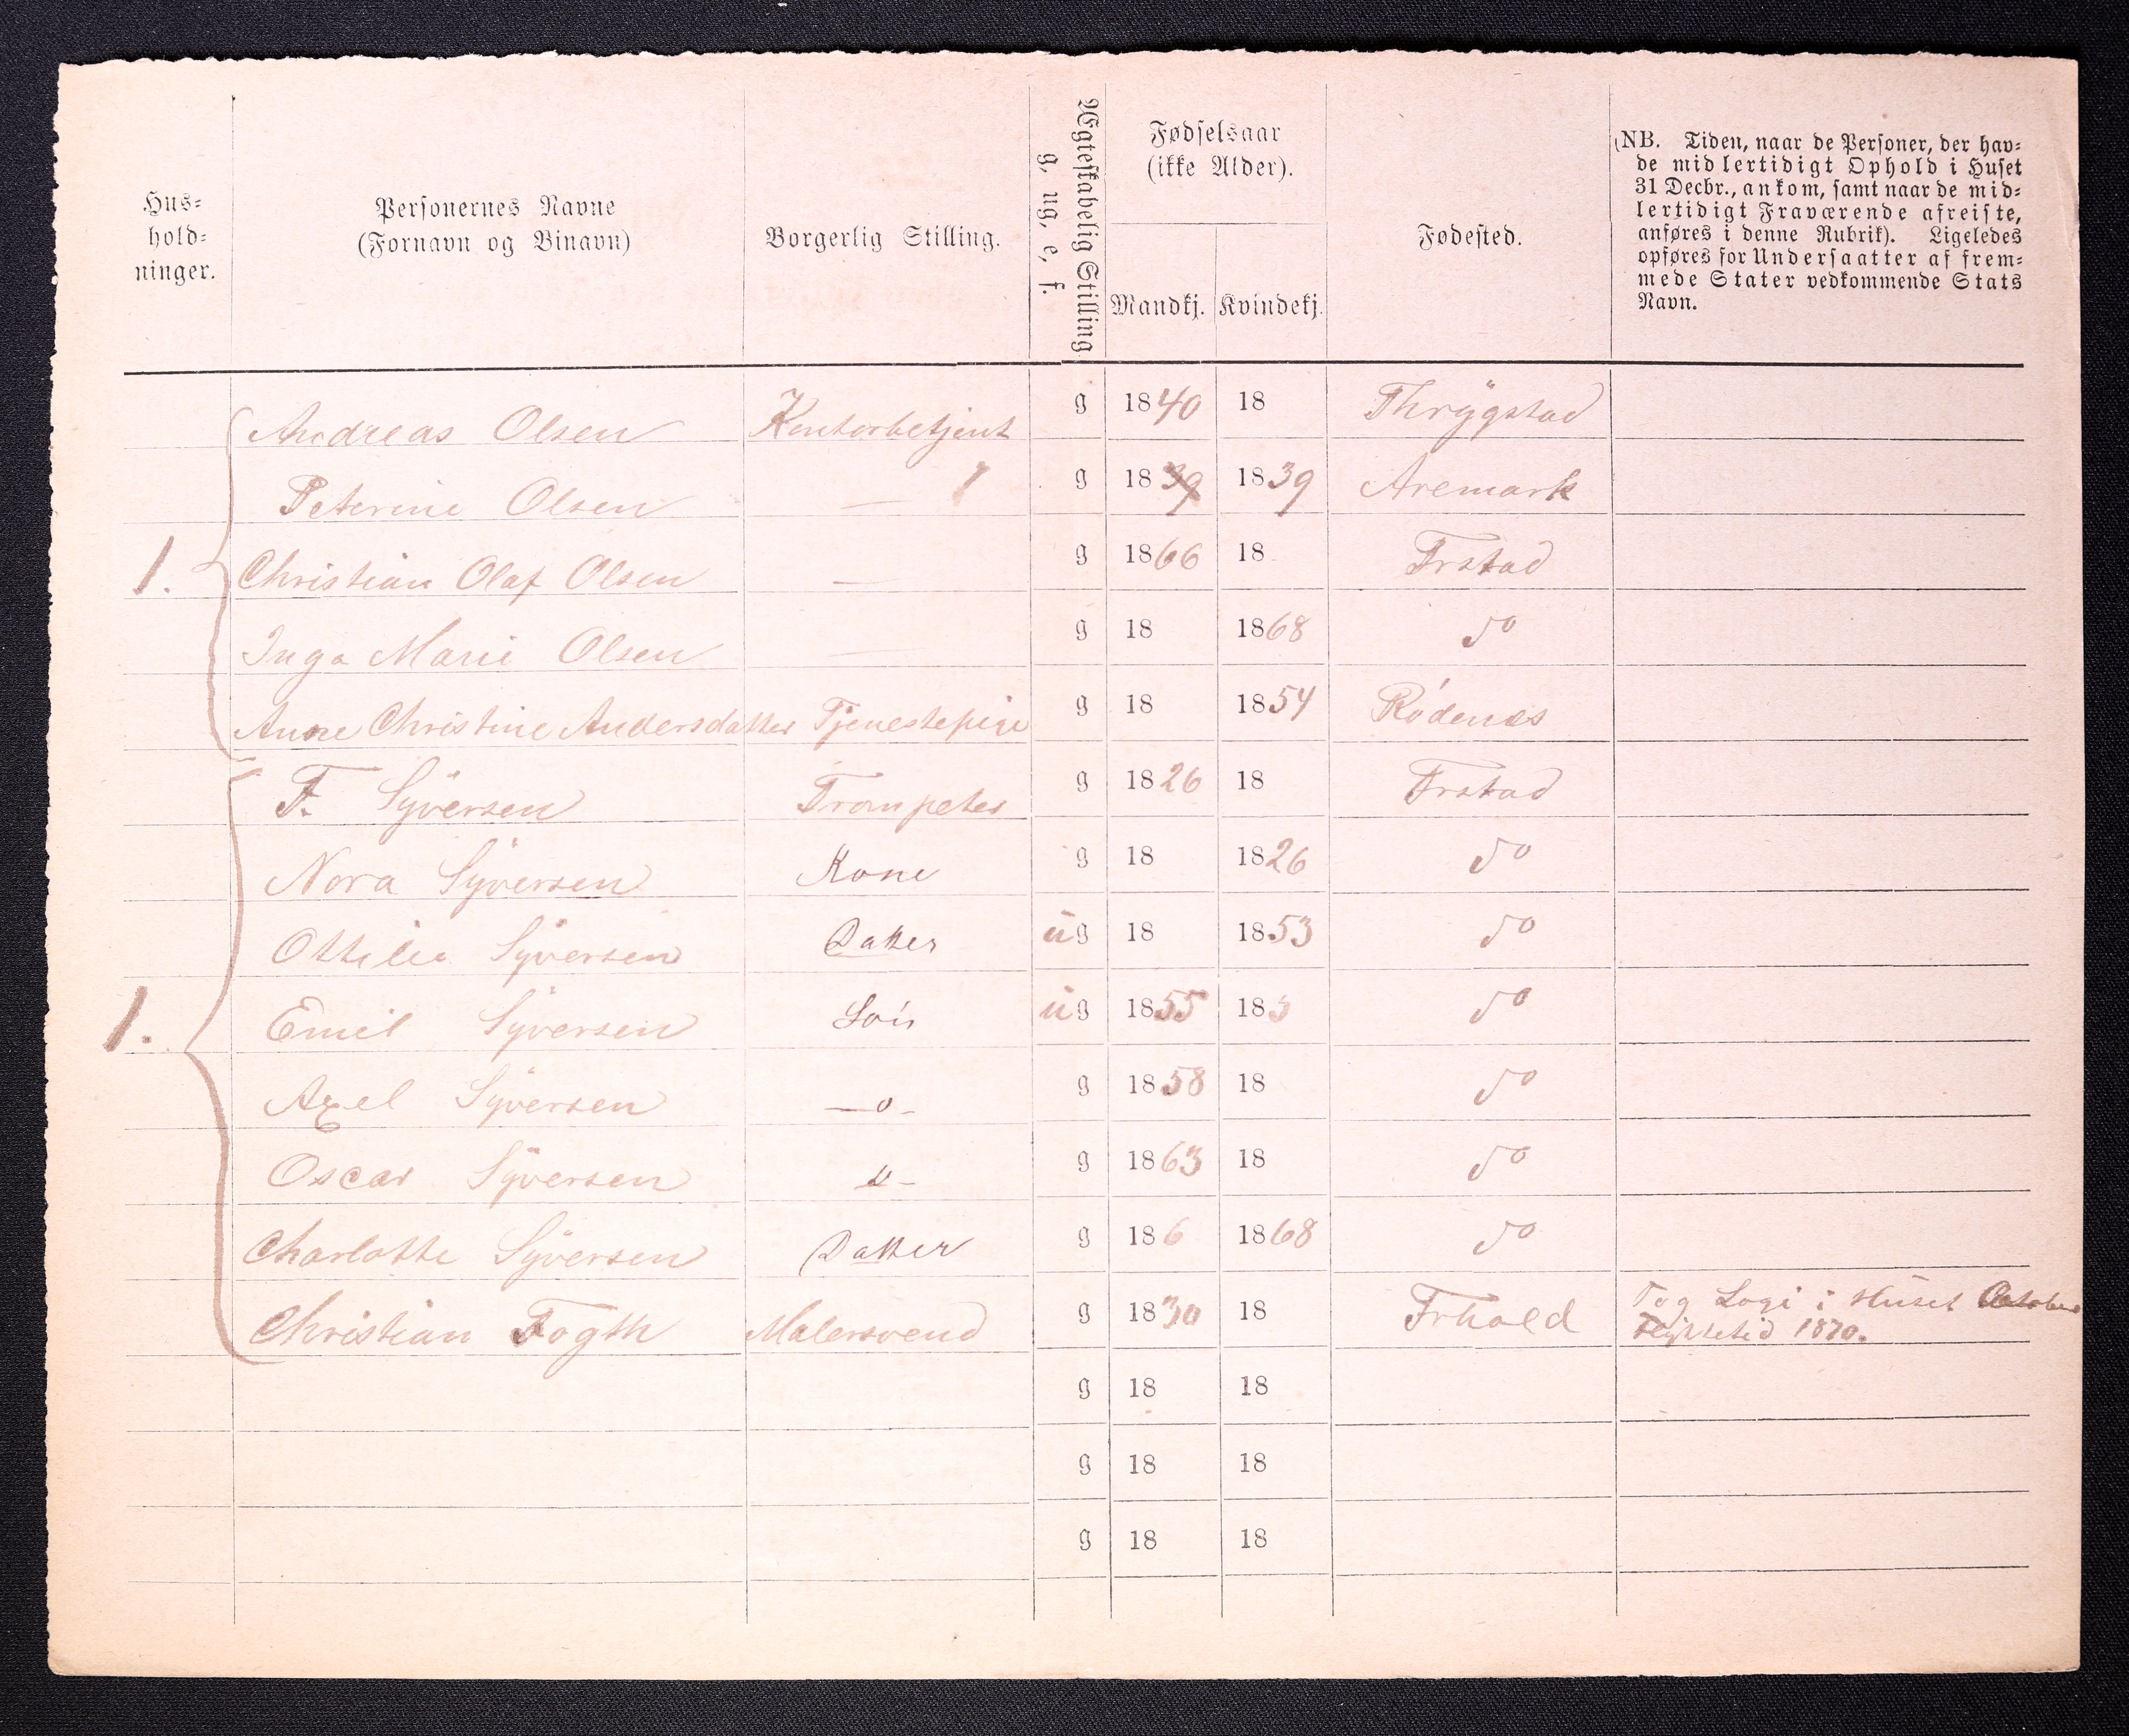 Hus-
hold-
ninger.
Personernes Navne
(Fornavn og Binavn)
Borgerlig Stilling.
Ægteskabelig Stilling
g, ug, e, f.
Fødselsaar
(ikke Alder).
Mandkj. Kvindekj.
Fødested.
(NB. Tiden, naar de Personer, der hav-
de midlertidigt Ophold i Huset
31 Decbr., ankom, samt naar de mid-
lertidigt Fraværende afreiste,
anføres i denne Rubrik). Ligeledes
opføres for Undersaatter af frem-
mede Stater vedkommende Stats
Navn.
Andreas Olsen Kontorbetjent g 1840 18 Thrÿgstad
Peterine Olsen — g 1839 1839 Aremark
1. Christian Olaf Olsen — g 1866 18 Frstad
Inga Marie Olsen — g 18 1868 do
Anne Christine Andersdatter Tjenestepige g 18 1854 Rødenæs
F. Sÿversen Trompeter g 1826 18 Frstad
Nora Sÿversen Kone g 18 1826 do
Ottilie Sÿversen Datter ug 18 1853 do
1. Emil Sÿversen Søn ug 1855 185 do
Axel Sÿversen —o— g 1858 18 do
Oscar Sÿversen o— g 1863 18 do
Charlotte Sÿversen Datter g 186 1868 do
Christian Fogth Malersvend g 1830 18 Frhald Tog Logi i Huset October
Flyttetid 1870.
g 18 18
g 18 18
g 18 18